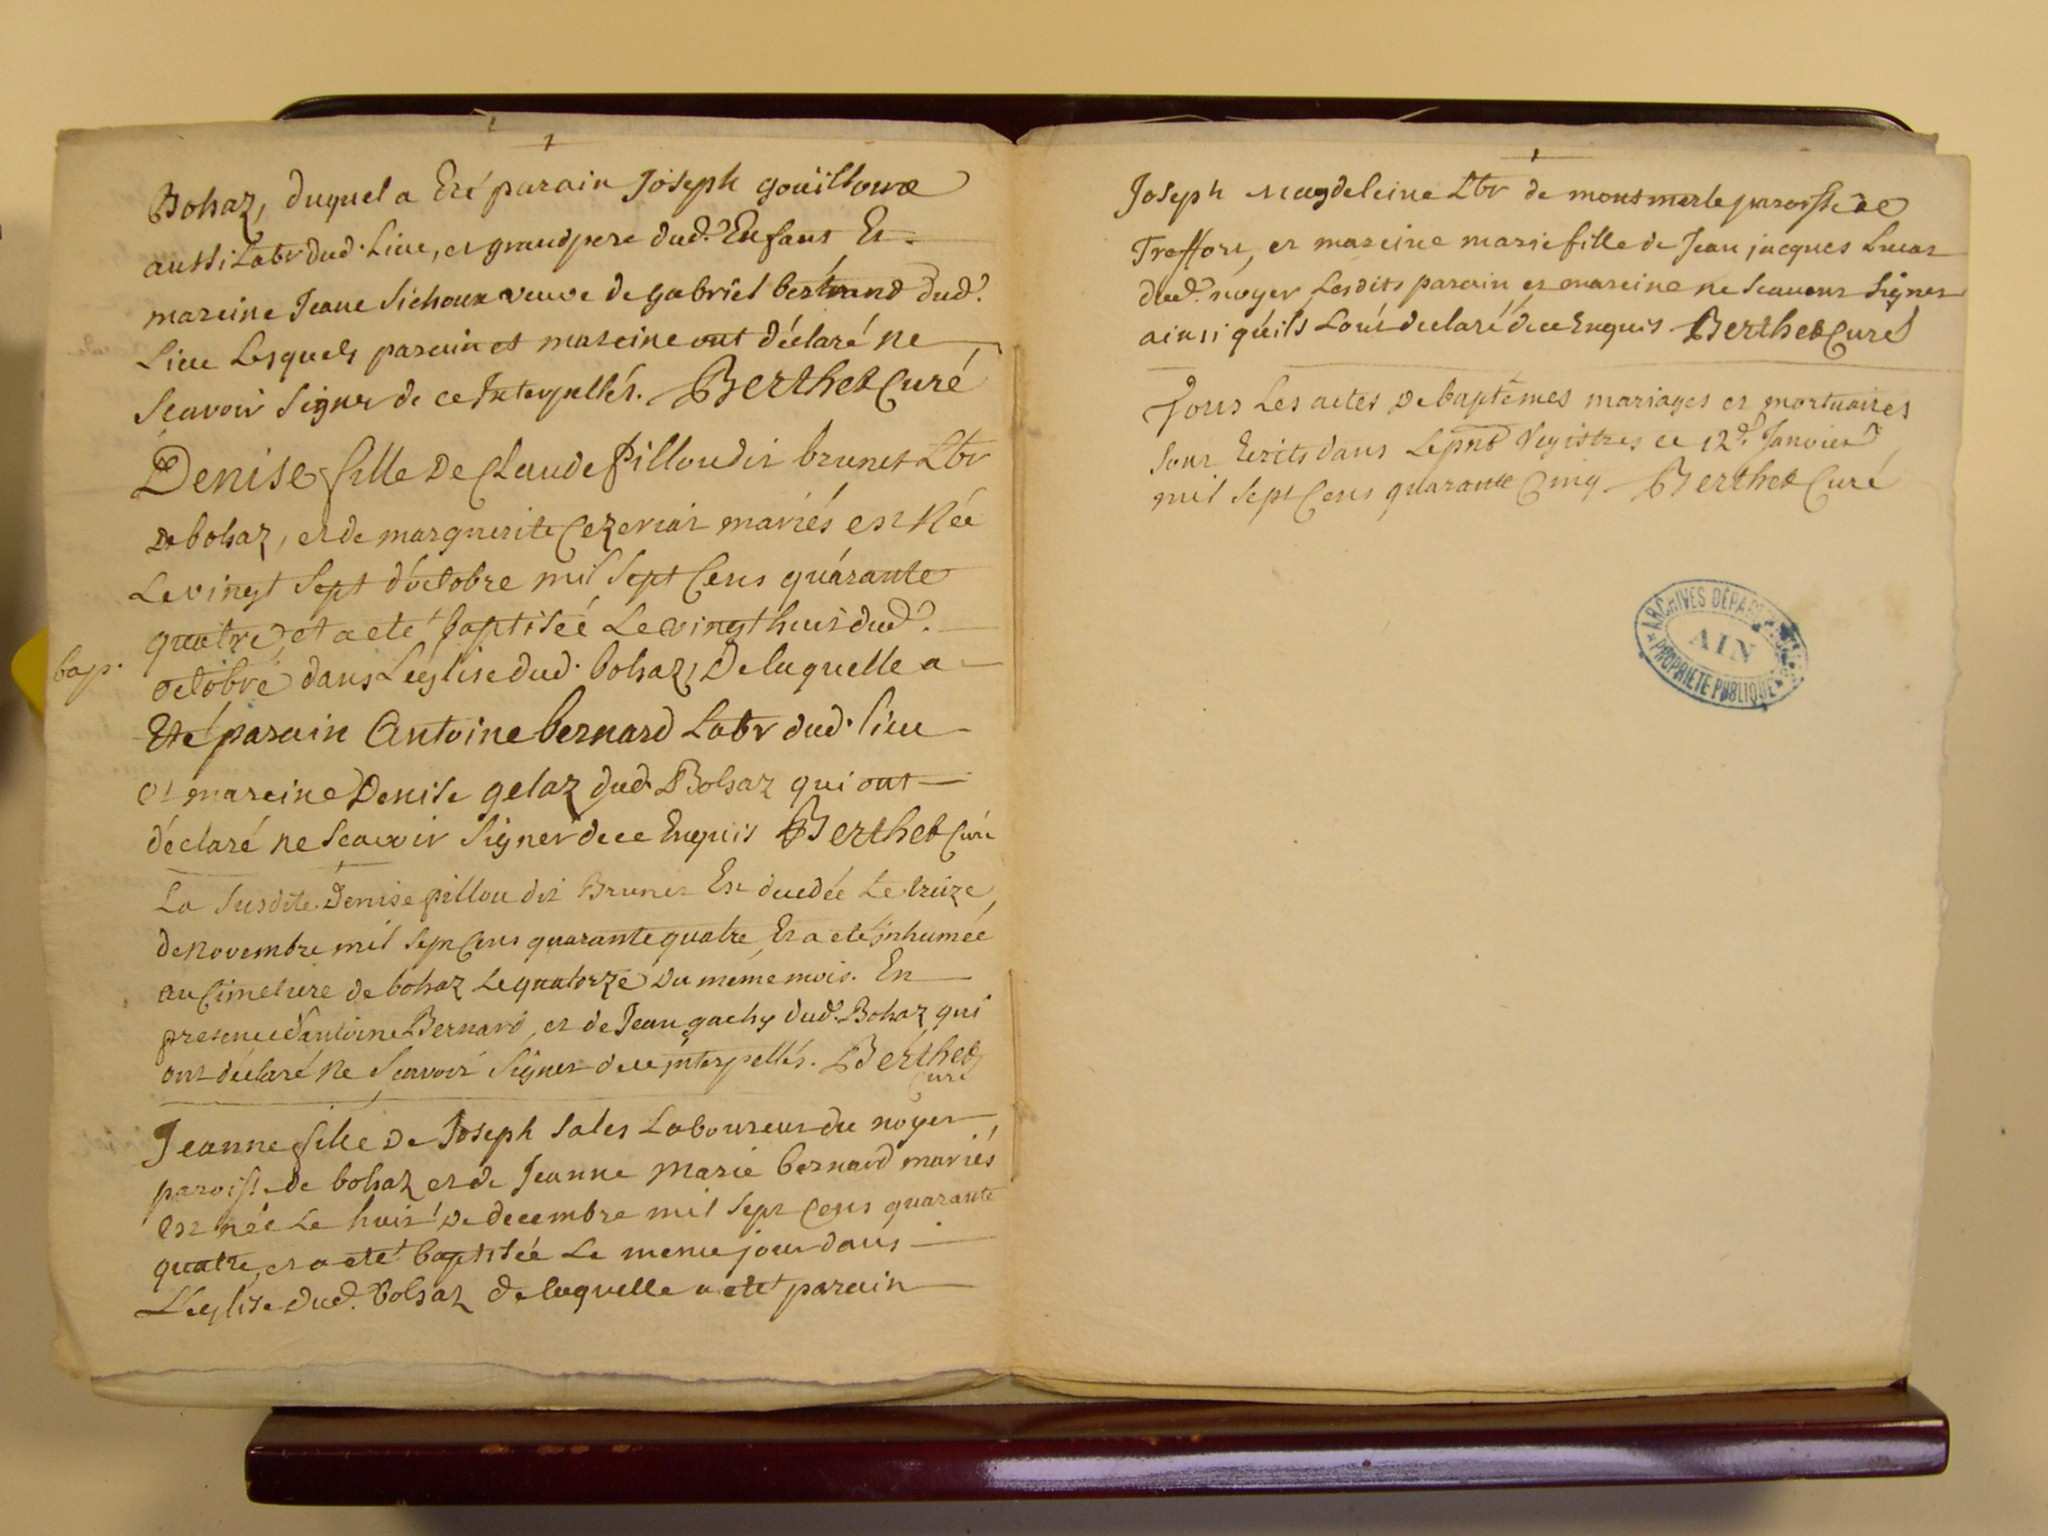 Bohaz, duquel a Eté parain Joseph gouilloux
aussi Labr dud. Lieu, et grandpere dud. Enfant Et
mareine Jeane Sichoux veuve de gabriel bertrand dud.
Lieu Lesquels parain et mareine ont déclaré ne
Scavoir Signer de ce Interpellés. Berthet Curé
Denise fille De Claude Pillou dit brunet Lbr
De bohaz, et de marguerite Cezeriat mariés est Née
Le vingt Sept d'octobre mil Sept Cens quárante
quatre, et a eté baptiseé Le vingt huit dud.
bap.
octobre dans Leglise dud. bohaz, De laquelle a
Eté parain Antoine bernard Labr dud. lieu
et mareine Denise gelaz dud. Bohaz qui ont
déclaré ne Scavoir Signer de ce Enquis Berthet Curé
La Susdite Denise pillou dit Brunet Est decedée Le treize
de Novembre mil Sept Cens quarante quatre Et a eté inhumée
au Cimetiere de bohaz Le quatorze Du meme mois. En
presence d'antoine Bernard, et de Jean gachy dud. Bohaz qui
ont déclaré Ne Scavoir Signer de ce interpellés. Berthet
Curé
Jeanne fille De Joseph Sales Laboureur du noyer
paroisse de bohaz et de Jeanne Marie bernard mariés
est née Le huit De decembre mil Sept Cens quarante
quatre, et a eté baptisée Le meme jour dans
L'eglise dud. Bohaz de laquelle a eté parain
Joseph Magdeleine Lbr de montmerle paroisse de
Treffort, et mareine marie fille de Jean jacques Lucas
dud. noyer Lesdits parain et mareine ne Scavent Signer
ainsi qu'ils L'ont declaré de ce Enquis Berthet Curé
Tous Les actes De baptêmes mariages et mortuaires
Sont Ecrits dans Le pnt Registres ce 12e. Janvier
mil Sept Cens quarante Cinq Berthet Curé
ARCHIVES DÉPARTEMENTALES
AIN
PROPRIÉTÉ PUBLIQUE